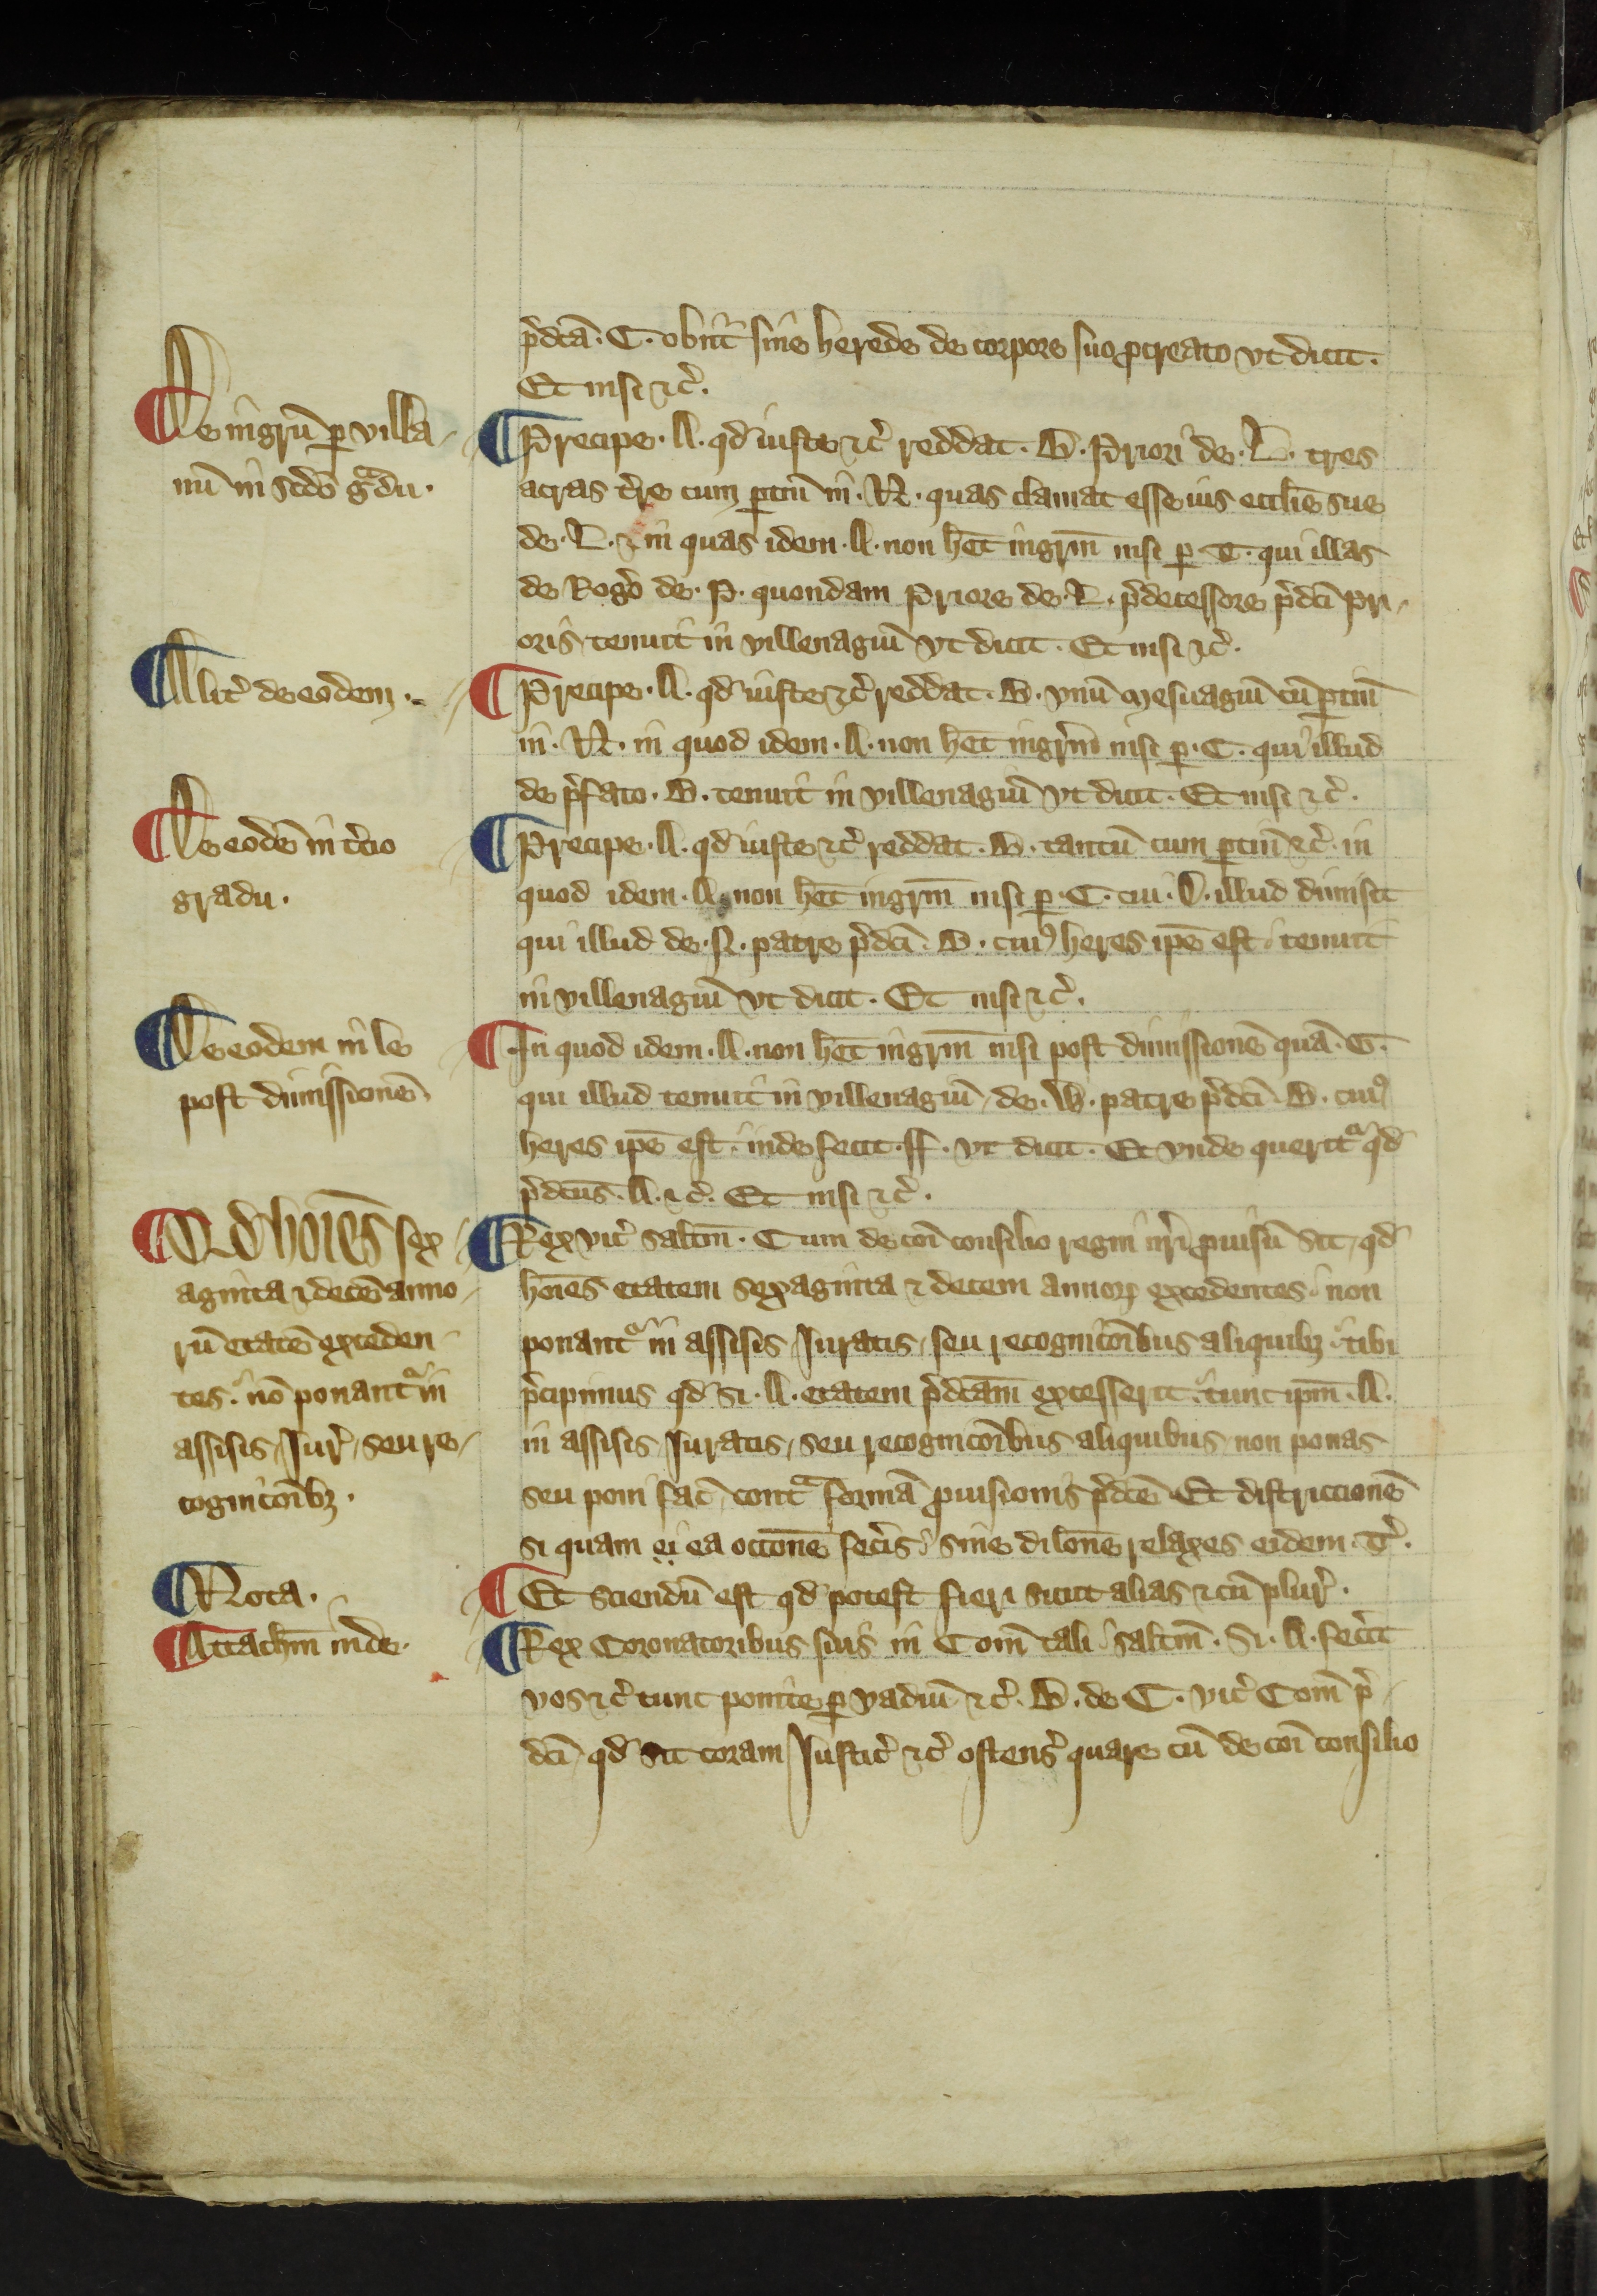 p̃dcã . C . obiit sine herede de corpore suo pcreato vt dicit .
Et nisi ⁊c̃ .
De ingrũ ꝑ villa
nũ in scdo g̃du .
Precipe . A . qd iuste ⁊c̃ reddat . B . Priori de . L . tres
acras t̃re cum ꝑtiñ in . N . quas clamat esse ius ecclie sue
de . L . ⁊ in quas idem . A . non het ingrm̃ nisi ꝑ . C . qui illas
de Rogo de . P . quondam Priore de . L . p̃decessore p̃dci pri
oris tenuit in villenagiũ vt dicit . Et nisi ⁊c̃ .
Alit̃ de eodem .
Precipe . A . qd iuste ⁊c̃ reddat . B . vnũ mesuagiũ cũ ꝑtiñ
in . N . in quod idem . A . non het ingrm̃ nisi ꝑ . C . qui illud
de p̃fato . B . tenuit in villenagiũ vt dicit . Et nisi ⁊c̃ .
De eodẽ in t̃cio
gradu .
Precipe . A . qd iuste ⁊c̃ reddat . B . tantũ cum ꝑtiñ ⁊c̃ . in
quod idem . A . non het ingrm̃ nisi ꝑ . C . cui . D . illud dimisit
qui illud de . N . patre p̃dci . B . cuiꝰ heres ipẽ est tenuit
in villenagiũ vt dicit . Et nisi ⁊c̃ .
De eodem in le
post dimissionẽ
In quod idem . A . non het ingrm̃ nisi post dimissionẽ quã . C .
qui illud tenuit in villenagiũ de . W . patre p̃dci . B . cuiꝰ
heres ipẽ est . inde fecit . ff . vt dicit . Et vnde querit̃ qd
p̃dcus . A . ⁊c̃ . Et nisi ⁊c̃ .
Qd hoies sex
aginta ⁊ decẽ anno
rũ etatẽ exceden
tes . nõ ponant̃ in
assisis Iur̃ , seu re
cognicoibȝ .
Rex vic̃ saltm̃ . Cum de coi consilio regni nr̃i ꝓuisũ sit , qd
hoies etatem sexaginta ⁊ decem annoꝝ excedentes non
ponant̃ in assisis , Iuratis , seu recognicoibus aliquibȝ . tibi
p̃cipimus qd si . A . etatem p̃dcam excesserit . tunc ipm̃ . A .
in assisis Iuratis , seu recognicoibus aliquibus non ponas
seu poni fac̃ , cont̃ formã ꝓuisionis p̃dce . Et districcionẽ
si quam ei ea occone fec̃is . sine dilone relaxes eidem . T̃ .
Nota .
Et sciendũ est qd potest fieri sicut alias ⁊ cũ plur̃ .
Attachm̃ inde .
Rex Coronatoribus suis in Com̃ tali saltm̃ . Si . A . fec̃it
vos ⁊c̃ tunc ponite ꝑ vadiũ ⁊c̃ . B . de C . vic̃ Com̃ p̃
dci , qd sit coram Iustic̃ ⁊c̃ ostens̃ quare cũ de coi consilio